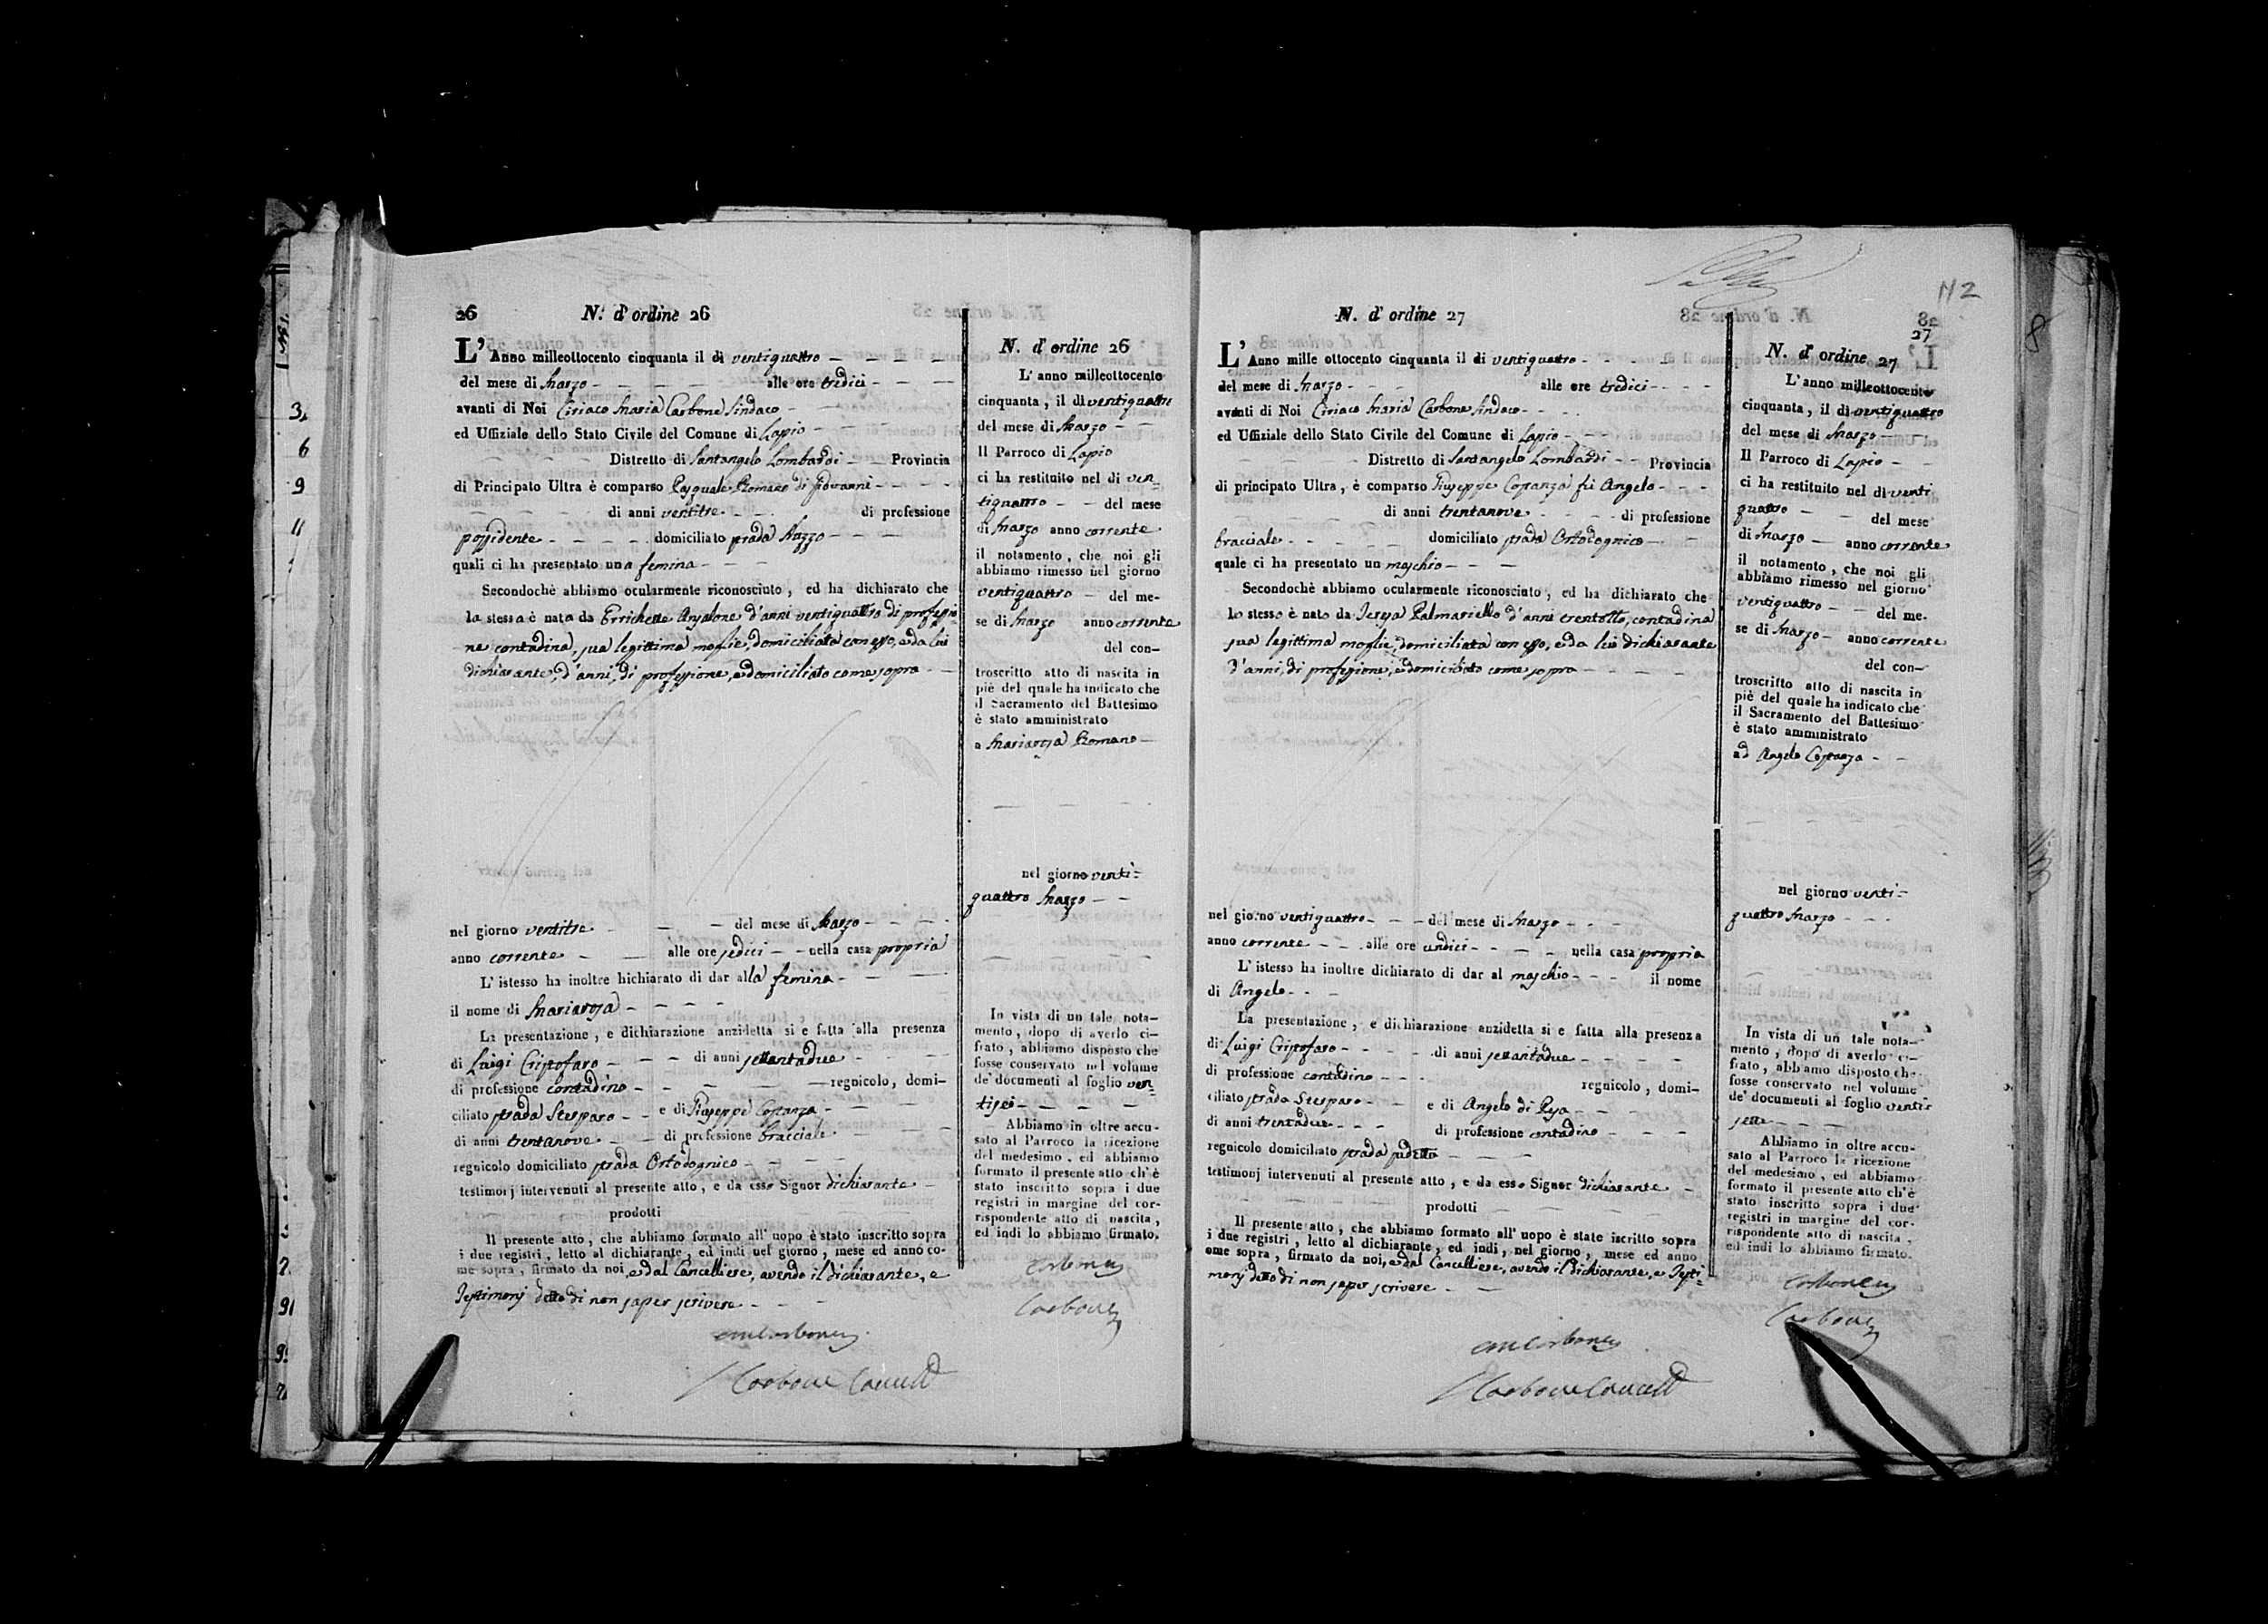 26
N.° d'ordine 26
L'Anno milleottocento cinquanta il dì ventiquattro
del mese di Marzo alle ore tredici
avanti di Noi Ciriaco Maria Carbone Sindaco
ed Uffiziale dello Stato Civile del Comune di Lapio
Distretto di Santangelo Lombardi Provincia
di Principato Ultra è comparso Pasquale Romano di Giovanni
di anni ventitre di professione
possidente domiciliato strada
quali ci ha presentato una femina
Secondochè abbiamo ocularmente riconosciuto, ed ha dichiarato che
la stessa è nata da Errichetta Anzalone d'anni ventiquattro di professio-
ne contadina, sua legittima moglie, domiciliata con esso, e da lui
dichiarante, d'anni, di professione, e domiciliato come sopra
nel giorno ventitre del mese di Marzo
anno corrente alle ore sedici nella casa propria
L'istesso ha inoltre hichiarato di dar alla femina
il nome di Mariarosa
La presentazione, e dichiarazione anzidetta si e fatta alla presenza
di Luigi Cristofaro di anni settantadue
di professione contadino regnicolo, domi-
ciliato strada e di Giuseppe Costanza
di anni trentanove di professione bracciale
regnicolo domiciliato strada Ortodognico
testimonj intervenuti al presente atto, e da esso Signor dichiarante
prodotti
Il presente atto, che abbiamo formato all'uopo è stato inscritto sopra
i due registri, letto al dichiarante, ed indi nel giorno, mese ed anno co-
me sopra, firmato da noi, e dal Cancelliere, avendo il dichiarante, e
Testimonj detto di non saper scrivere
Carbone
N. d'ordine 26
L'anno milleottocento
cinquanta, il dì ventiquattro
del mese di Marzo
Il Parroco di Lapio
ci ha restituito nel di ven-
tiquattro del mese
di Marzo anno corrente
il notamento, che noi gli
abbiamo rimesso nel giorno
ventiquattro del me-
se di Marzo anno corrente
del con-
troscritto atto di nascita in
piè del quale ha indicato che
il Sacramento del Battesimo
è stato amministrato
a Mariarosa Romano
nel giorno venti-
quattro Marzo
In vista di un tale nota-
mento, dopo di averlo ci-
frato, abbiamo disposto che
fosse conservato nel volume
de' documenti al foglio ven-
tisei
Abbiamo in oltre accu-
sato al Parroco la ricezione
del medesimo, ed abbiamo
formato il presente atto ch'è
stato inscritto sopra i due
registri in margine del cor-
rispondente atto di nascita,
ed indi lo abbiamo firmato.
Carbone
Carbone
112
27
N. d'ordine 27
L'Anno mille ottocento cinquanta il di ventiquattro
del mese di Marzo alle ore tredici
avanti di Noi Ciriaco Maria Carbone Sindaco
ed Uffiziale dello Stato Civile del Comune di Lapio
Distretto di Santangelo Lombardi Provincia
di principato Ultra, è comparso Giuseppe Costanza fù Angelo
di anni trentanove di professione
bracciale domiciliato strada Ortodognico
quale ci ha presentato un maschio
Secondochè abbiamo ocularmente riconosciuto, ed ha dichiarato che
lo stesso è nato da Teresa Palmariello d'anni trentotto, contadina
sua legittima moglie, domiciliata con esso, e da lui dichiarante
d'anni, di professione, e domiciliato come sopra
nel giorno ventiquattro del mese di Marzo
anno corrente alle ore undici nella casa propria
L'istesso ha inoltre dichiarato di dar al maschio il nome
di Angelo
La presentazione, e dichiarazione anzidetta si e fatta alla presenza
di Luigi Cristofaro di anni settantadue
di professione contadino regnicolo, domi-
ciliato strada e di Angelo di
di anni trentadue di professione contadino
regnicolo domiciliato strada sudetta
testimonj intervenuti al presente atto, e da esso Signor dichiarante
prodotti
Il presente atto, che abbiamo formato all'uopo è stato iscritto sopra
i due registri, letto al dichiarante, ed indi, nel giorno, mese ed anno
ome sopra, firmato da noi, e dal Cancelliere, avendo il dichiarante, e Testi-
monj detto di non saper scrivere
Carbone
N. d'ordine 27
L'anno milleottocento
cinquanta, il dì ventiquattro
del mese di Marzo
Il Parroco di Lapio
ci ha restituito nel dì venti
quattro del mese
di Marzo anno corrente
il notamento, che noi gli
abbiamo rimesso nel giorno
ventiquattro del me-
se di Marzo anno corrente
del con-
troscritto atto di nascita in
piè del quale ha indicato che
il Sacramento del Battesimo
è stato amministrato
ad Angelo Costanza
nel giorno venti-
quattro Marzo
In vista di un tale nota-
mento, dopo di averlo ci-
frato, abbiamo disposto che
fosse conservato nel volume
de' documenti al foglio venti-
sette
Abbiamo in oltre accu-
sato al Parroco la ricezione
del medesimo, ed abbiamo
formato il presente atto ch'è
stato inscritto sopra i due
registri in margine del cor-
rispondente atto di nascita,
ed indi lo abbiamo firmato.
Carbone
Carbone